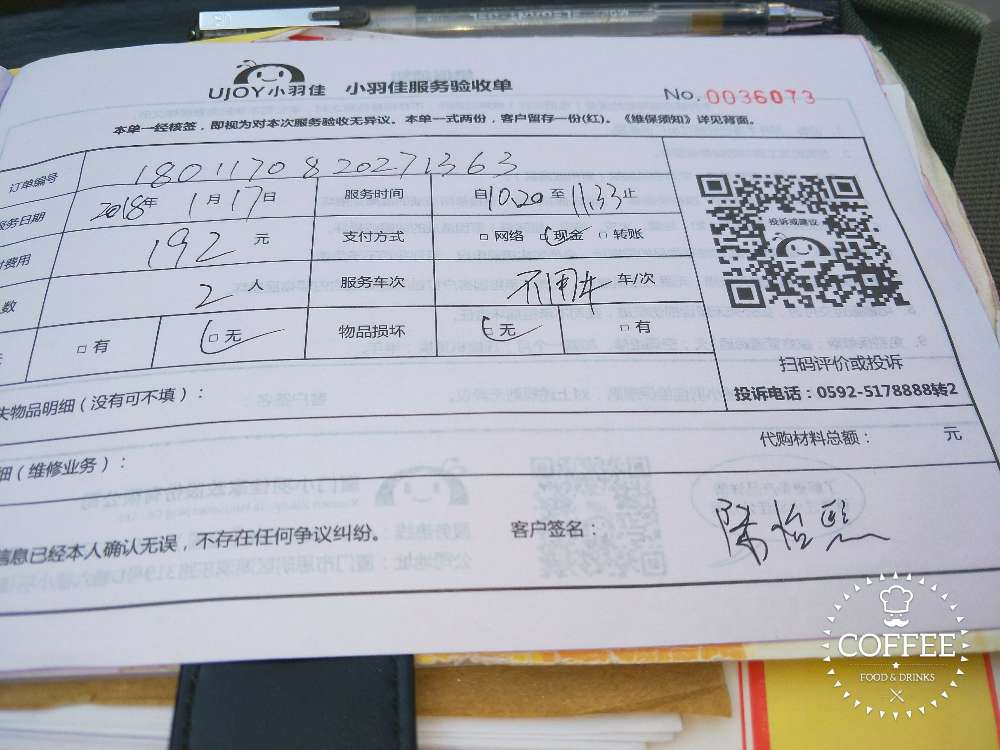 UJOY小羽佳 小羽佳服务验收单
No.0036073
本单一经核签，即视为对本次服务验收无异议。本单一式两份，客户留存一份(红)。《维保须知》详见背面。
订单编号 18011708202713​63
服务日期 2018年 1月17日 服务时间 自10:20至11:33止
费用 192 元 支付方式 □网络 □现金 □转账
数 2 人 服务车次 不用车 车/次
□有 □无 物品损坏 □无 □有
投诉或建议
扫码评价或投诉
投诉电话：0592-5178888转2
失物品明细（没有可不填）：
代购材料总额： 元
细（维修业务）：
信息已经本人确认无误，不存在任何争议纠纷。 客户签名： 陈怡
COFFEE
FOOD & DRINKS